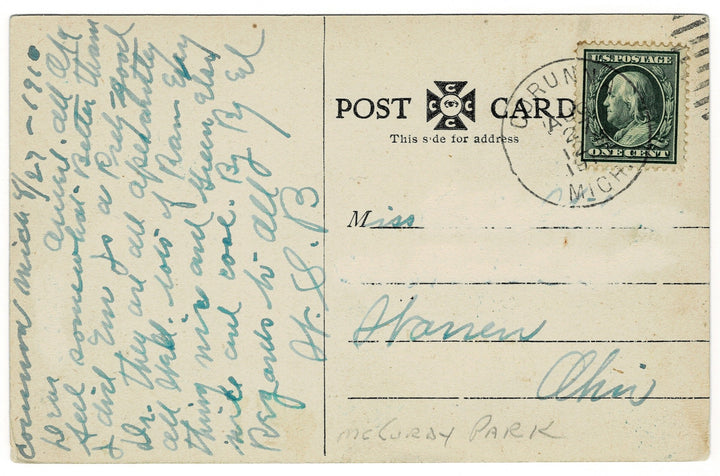 Corunna Mich 8/27 - 1910
Dear all OK
feel somewhat Better than
I did to a Prety Good
Dr. they are all aparantley
all Well. lots of Rain Evry
thing nice and Green also
nice and cool. By By
Regards to all
POST CARD
C C C C
This side for address
U.S. POSTAGE
ONE CENT
CORUN
MICH.
Miss
Warren
Ohio
McCURDY PARK